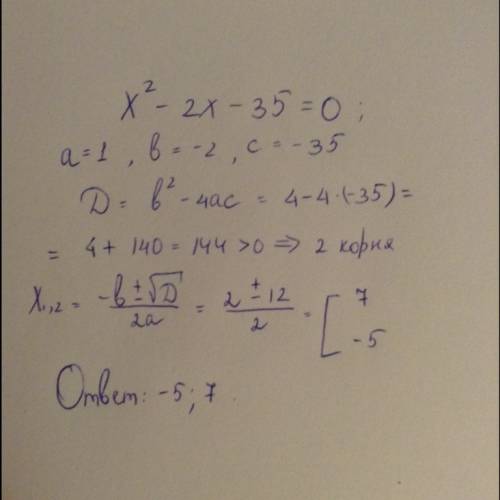 x² - 2x - 35 = 0 ;
a = 1 , в = -2 , c = -35
D = в² - 4ac = 4 - 4·(-35) =
= 4 + 140 = 144 > 0 => 2 корня
X₁,₂ = (-в ± √D)/(2a) = (2 ± 12)/2 = [ 7 -5
Ответ: -5; 7.